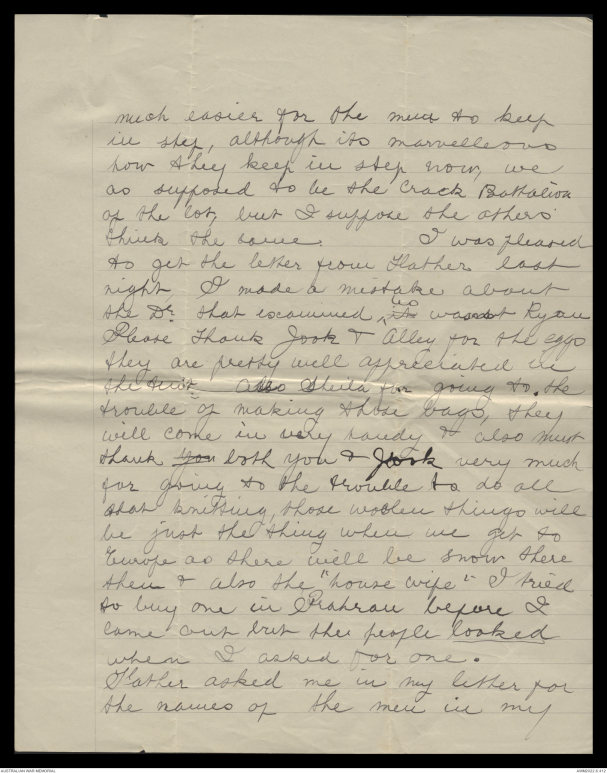 much easier for the men to keep
in step, although its marvelleous
how they keep in step now, we
as supposed to be the Crack Battalion
of the lot, but I suppose the others
think the same. I was pleased
to get the letter from Father last
night I made a mistake about
the Dr. that escammed, it wasnt Ryan
Please Thank Jook & Alley for the eggs
they are pretty well appreciated in
the tent also Sheila for going to the
trouble of making those bags, they
will come in very handy & also must
thank you both you & Jook very much
for going to the trouble to do all
that knitting, those woolen things will
be just the thing when we get to
Europe as there will be snow there
then & also the "house wife" I tried
to buy one in Prahran before I
came out but the people looked
when I asked for one.
Father asked me in my letter for
the names of the men in my
AUSTRALIAN WAR MEMORIAL